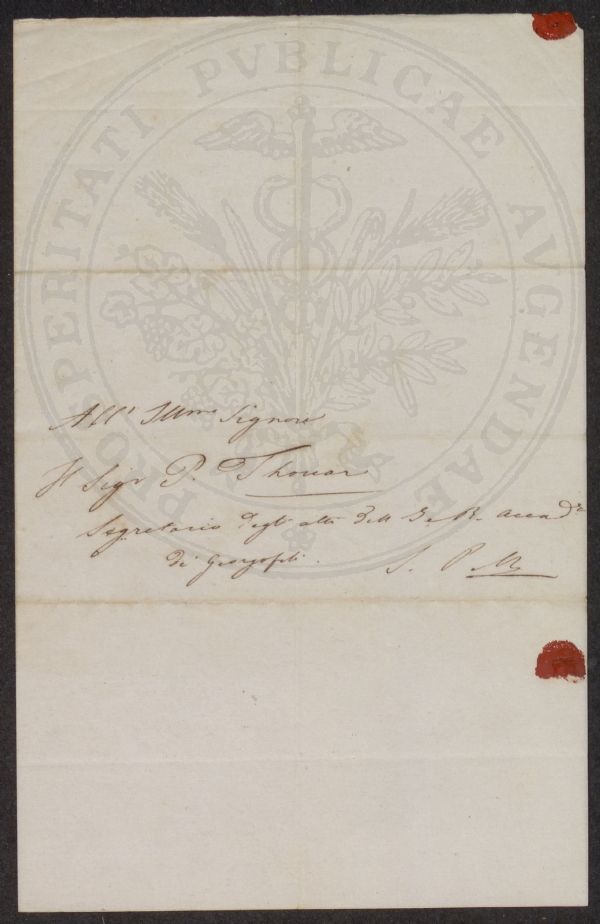 PROSPERITATI PVBLICAE AVGENDAE
All' Illmo Signore
Il Sigr P. Thouar
Segretario degli atti dell I. e R. Accadia
dei Georgofili.
S. P. M.